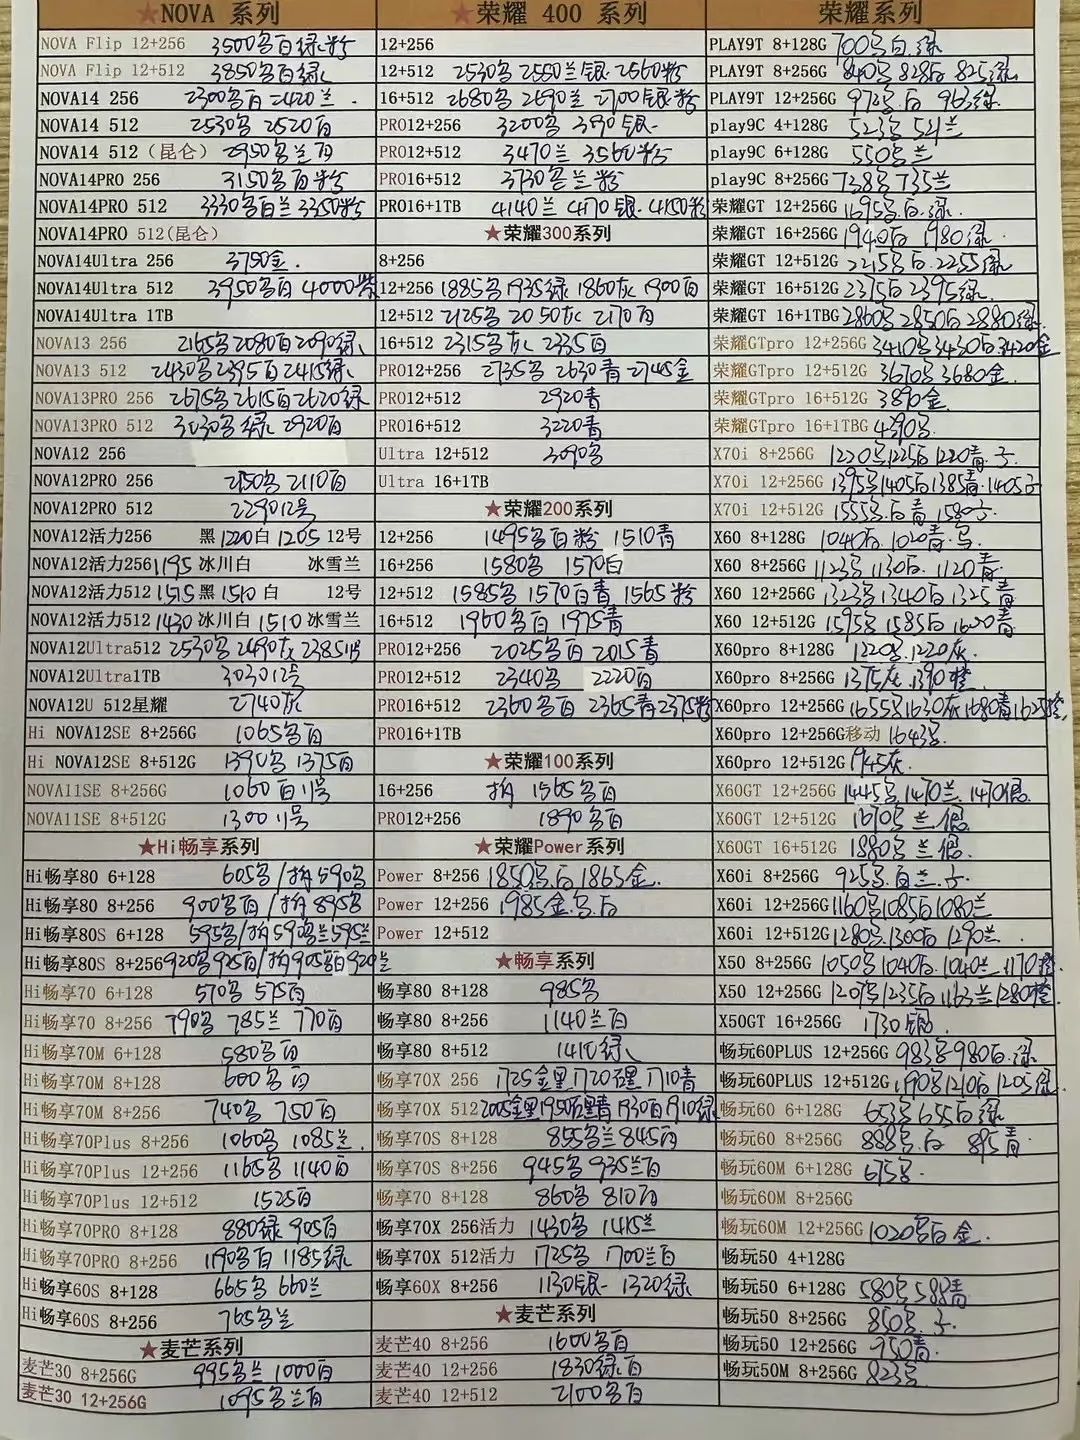 ★NOVA 系列
NOVA Flip 12+256 3500黑白绿粉
NOVA Flip 12+512 3850黑白绿
NOVA14 256 2300黑白 2420兰
NOVA14 512 2530黑 2520白
NOVA14 512（昆仑） 2950黑兰白
NOVA14PRO 256 3150黑白粉
NOVA14PRO 512 3330黑白兰 3350粉
NOVA14PRO 512(昆仑)
NOVA14Ultra 256 3750金.
NOVA14Ultra 512 3950黑白 4000紫
NOVA14Ultra 1TB
NOVA13 256 2165黑2080白2090绿
NOVA13 512 2430黑2395白2415绿
NOVA13PRO 256 2675黑2615白2620绿
NOVA13PRO 512 3030黑绿 2920白
NOVA12 256
NOVA12PRO 256 2150黑 2110白
NOVA12PRO 512 2290 12号
NOVA12活力256 黑1220白 1205 12号
NOVA12活力256 1195 冰川白 冰雪兰
NOVA12活力512 1515 黑 1510 白 12号
NOVA12活力512 1430 冰川白 1510 冰雪兰
NOVA12Ultra512 2530黑2490灰2385 12号
NOVA12Ultra1TB 3030 12号
NOVA12U 512星耀 2740灰
Hi NOVA12SE 8+256G 1065黑白
Hi NOVA12SE 8+512G 1390黑 1375白
NOVA11SE 8+256G 1060白 11号
NOVA11SE 8+512G 1300 11号
★Hi畅享系列
Hi畅享80 6+128 605黑/拆590黑
Hi畅享80 8+256 900黑白/拆895黑
Hi畅享80S 6+128 595黑/拆590黑兰595兰
Hi畅享80S 8+256 920黑925白/拆905黑白920兰
Hi畅享70 6+128 570黑 575白
Hi畅享70 8+256 790黑 785兰 770白
Hi畅享70M 6+128 580黑白
Hi畅享70M 8+128 600黑白
Hi畅享70M 8+256 740黑 750白
Hi畅享70Plus 8+256 1060黑 1085兰.
Hi畅享70Plus 12+256 1165黑 1140白
Hi畅享70Plus 12+512 1525白
Hi畅享70PRO 8+128 880绿 905白
Hi畅享70PRO 8+256 1190黑白 1185绿
Hi畅享60S 8+128 665黑 660兰
Hi畅享60S 8+256 765黑兰
★麦芒系列
麦芒30 8+256G 995黑兰 1000白
麦芒30 12+256G 1095黑兰白
★荣耀 400 系列
12+256
12+512 2530黑 2550兰银 2560粉
16+512 2680黑 2690兰 2700银粉
PRO12+256 3200黑 3190银
PRO12+512 3470兰 3560粉
PRO16+512 3730黑兰粉
PRO16+1TB 4140兰 4170银 4150粉
★荣耀300系列
8+256
12+256 1885黑1935绿 1860灰 1900白
12+512 2125黑 2050灰 2170白
16+512 2315黑灰 2335白
PRO12+256 2735黑 2630青 2745金
PRO12+512 2920青
PRO16+512 3220青
Ultra 12+512 3090黑
Ultra 16+1TB
★荣耀200系列
12+256 1495黑白粉 1510青
16+256 1580黑 1570白
12+512 1585黑 1570白青 1565粉
16+512 1960黑白 1975青
PRO12+256 2025黑白 2015青
PRO12+512 2340黑 2220白
PRO16+512 2360黑白 2365青2375粉
PRO16+1TB
★荣耀100系列
16+256 拆 1565黑白
PRO12+256 1890黑白
★荣耀Power系列
Power 8+256 1850黑.白 1865金.
Power 12+256 1985金.黑.白
Power 12+512
★畅享系列
畅享80 8+128 985黑
畅享80 8+256 1140兰白
畅享80 8+512 1410绿
畅享70X 256 1725金黑1720石黑 1710青
畅享70X 512 2005金黑1950石黑青 1930白1910绿
畅享70S 8+128 855黑兰 845白
畅享70S 8+256 945黑 935兰白
畅享70 8+128 860黑 810白
畅享70X 256活力 1430黑 1415兰
畅享70X 512活力 1725黑 1700兰白
畅享60X 8+256 1130银 1320绿
★麦芒系列
麦芒40 8+256 1600黑白
麦芒40 12+256 1830绿白
麦芒40 12+512 2100黑白
荣耀系列
PLAY9T 8+128G 700黑白.绿
PLAY9T 8+256G 840黑 828白 825绿
PLAY9T 12+256G 972黑.白 963绿.
play9C 4+128G 523黑 521兰
play9C 6+128G 550黑兰
play9C 8+256G 738黑 735兰
荣耀GT 12+256G 1695黑.白.绿.
荣耀GT 16+256G 1940白 1980绿.
荣耀GT 12+512G 2215黑白.2255绿
荣耀GT 16+512G 2375白 2395绿.
荣耀GT 16+1TBG 2860黑2850白2880绿.
荣耀GTpro 12+256G 3410黑3430白.3420金
荣耀GTpro 12+512G 3670黑 3680金.
荣耀GTpro 16+512G 3890金.
荣耀GTpro 16+1TBG 4390黑.
X70i 8+256G 1220黑1225白1220青.紫.
X70i 12+256G 1395黑1405白1385青.1405紫
X70i 12+512G 1555黑.白青 1580紫.
X60 8+128G 1040白.1020青.黑.
X60 8+256G 1123黑.1130白.1120青.
X60 12+256G 1323黑1340白1325青
X60 12+512G 1595黑1585白1620青
X60pro 8+128G 1220黑.1220灰.
X60pro 8+256G 1375灰.1390橙.
X60pro 12+256G 1655黑1630灰1680青1625橙.
X60pro 12+256G移动 1643黑.
X60pro 12+512G 1945灰.
X60GT 12+256G 1445黑.1470兰.1470银.
X60GT 12+512G 1670黑兰.银.
X60GT 16+512G 1880黑兰.银.
X60i 8+256G 925黑.白兰.紫.
X60i 12+256G 1160黑1085白1080兰
X60i 12+512G 1280黑.1300白 1290兰.
X50 8+256G 1050黑1040白.1040兰.1170橙.
X50 12+256G 1207黑1235白1163兰1280橙.
X50GT 16+256G 1730银.
畅玩60PLUS 12+256G 983黑980白.绿
畅玩60PLUS 12+512G 1190黑1210白 1205绿
畅玩60 6+128G 653黑 655白绿
畅玩60 8+256G 888黑.白 895青.
畅玩60M 6+128G 675黑.
畅玩60M 8+256G
畅玩60M 12+256G 1020黑白金.
畅玩50 4+128G
畅玩50 6+128G 580黑 588青
畅玩50 8+256G 850黑.紫.
畅玩50 12+256G 950青.
畅玩50M 8+256G 823黑.